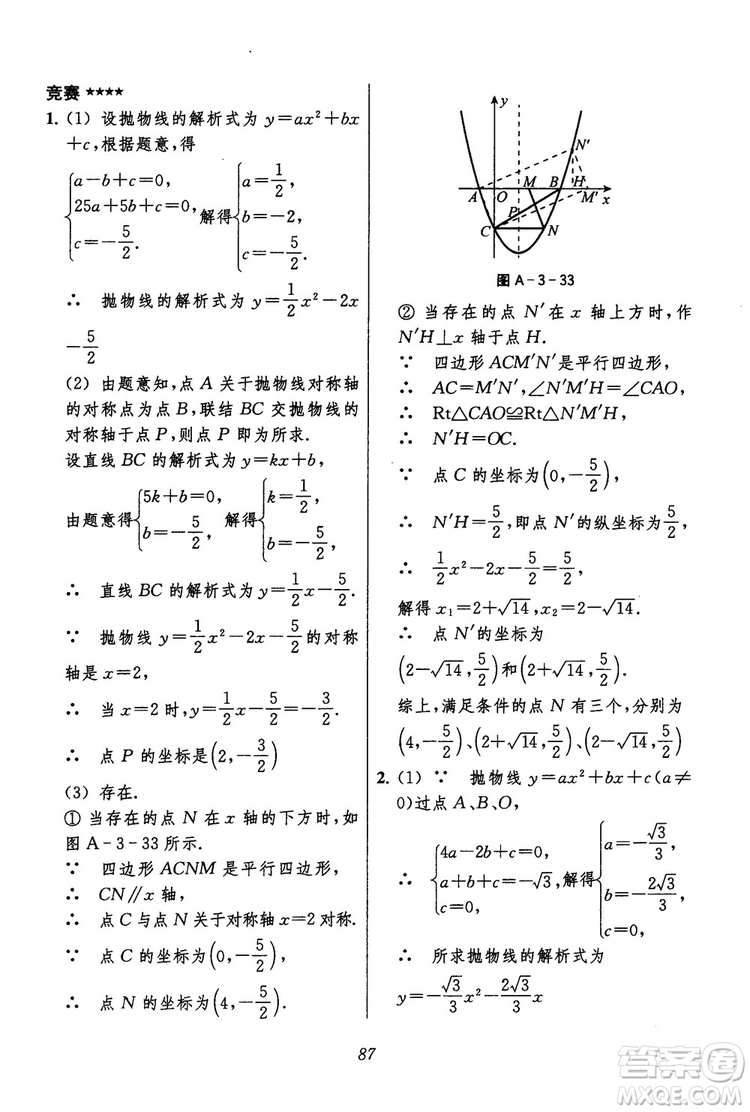 竞赛 ★★★★
1. (1) 设抛物线的解析式为 y=ax²+bx
+c,根据题意,得
{a-b+c=0, 25a+5b+c=0, c=-5/2. 解得{a=1/2, b=-2, c=-5/2.
∴ 抛物线的解析式为 y=1/2x²-2x
-5/2
(2) 由题意知,点 A 关于抛物线对称轴
的对称点为点 B,联结 BC 交抛物线的
对称轴于点 P,则点 P 即为所求.
设直线 BC 的解析式为 y=kx+b,
由题意得{5k+b=0, b=-5/2, 解得{k=1/2, b=-5/2.
∴ 直线 BC 的解析式为 y=1/2x-5/2.
∵ 抛物线 y=1/2x²-2x-5/2的对称
轴是 x=2,
∴ 当 x=2 时,y=1/2x-5/2=-3/2.
∴ 点 P 的坐标是(2,-3/2)
(3) 存在.
① 当存在的点 N 在 x 轴的下方时,如
图 A-3-33 所示.
∵ 四边形 ACNM 是平行四边形,
∴ CN∥x 轴,
∴ 点 C 与点 N 关于对称轴 x=2 对称.
∵ 点 C 的坐标为(0,-5/2),
∴ 点 N 的坐标为(4,-5/2).
y
N′
A O M B H
M′ x
P
C N
图 A-3-33
② 当存在的点 N′在 x 轴上方时,作
N′H⊥x 轴于点 H.
∵ 四边形 ACM′N′是平行四边形,
∴ AC=M′N′,∠N′M′H=∠CAO,
∴ Rt△CAO≌Rt△N′M′H,
∴ N′H=OC.
∵ 点 C 的坐标为(0,-5/2),
∴ N′H=5/2,即点 N′的纵坐标为5/2,
∴ 1/2x²-2x-5/2=5/2,
解得 x₁=2+√14,x₂=2-√14.
∴ 点 N′的坐标为
(2-√14,5/2)和(2+√14,5/2).
综上,满足条件的点 N 有三个,分别为
(4,-5/2),(2+√14,5/2),(2-√14,5/2)
2. (1) ∵ 抛物线 y=ax²+bx+c(a≠
0)过点 A、B、O,
∴ {4a-2b+c=0, a+b+c=-√3, c=0. 解得{a=-√3/3, b=-2√3/3, c=0.
∴ 所求抛物线的解析式为
y=-√3/3x²-2√3/3x
87
答案圈
MXQE.COM